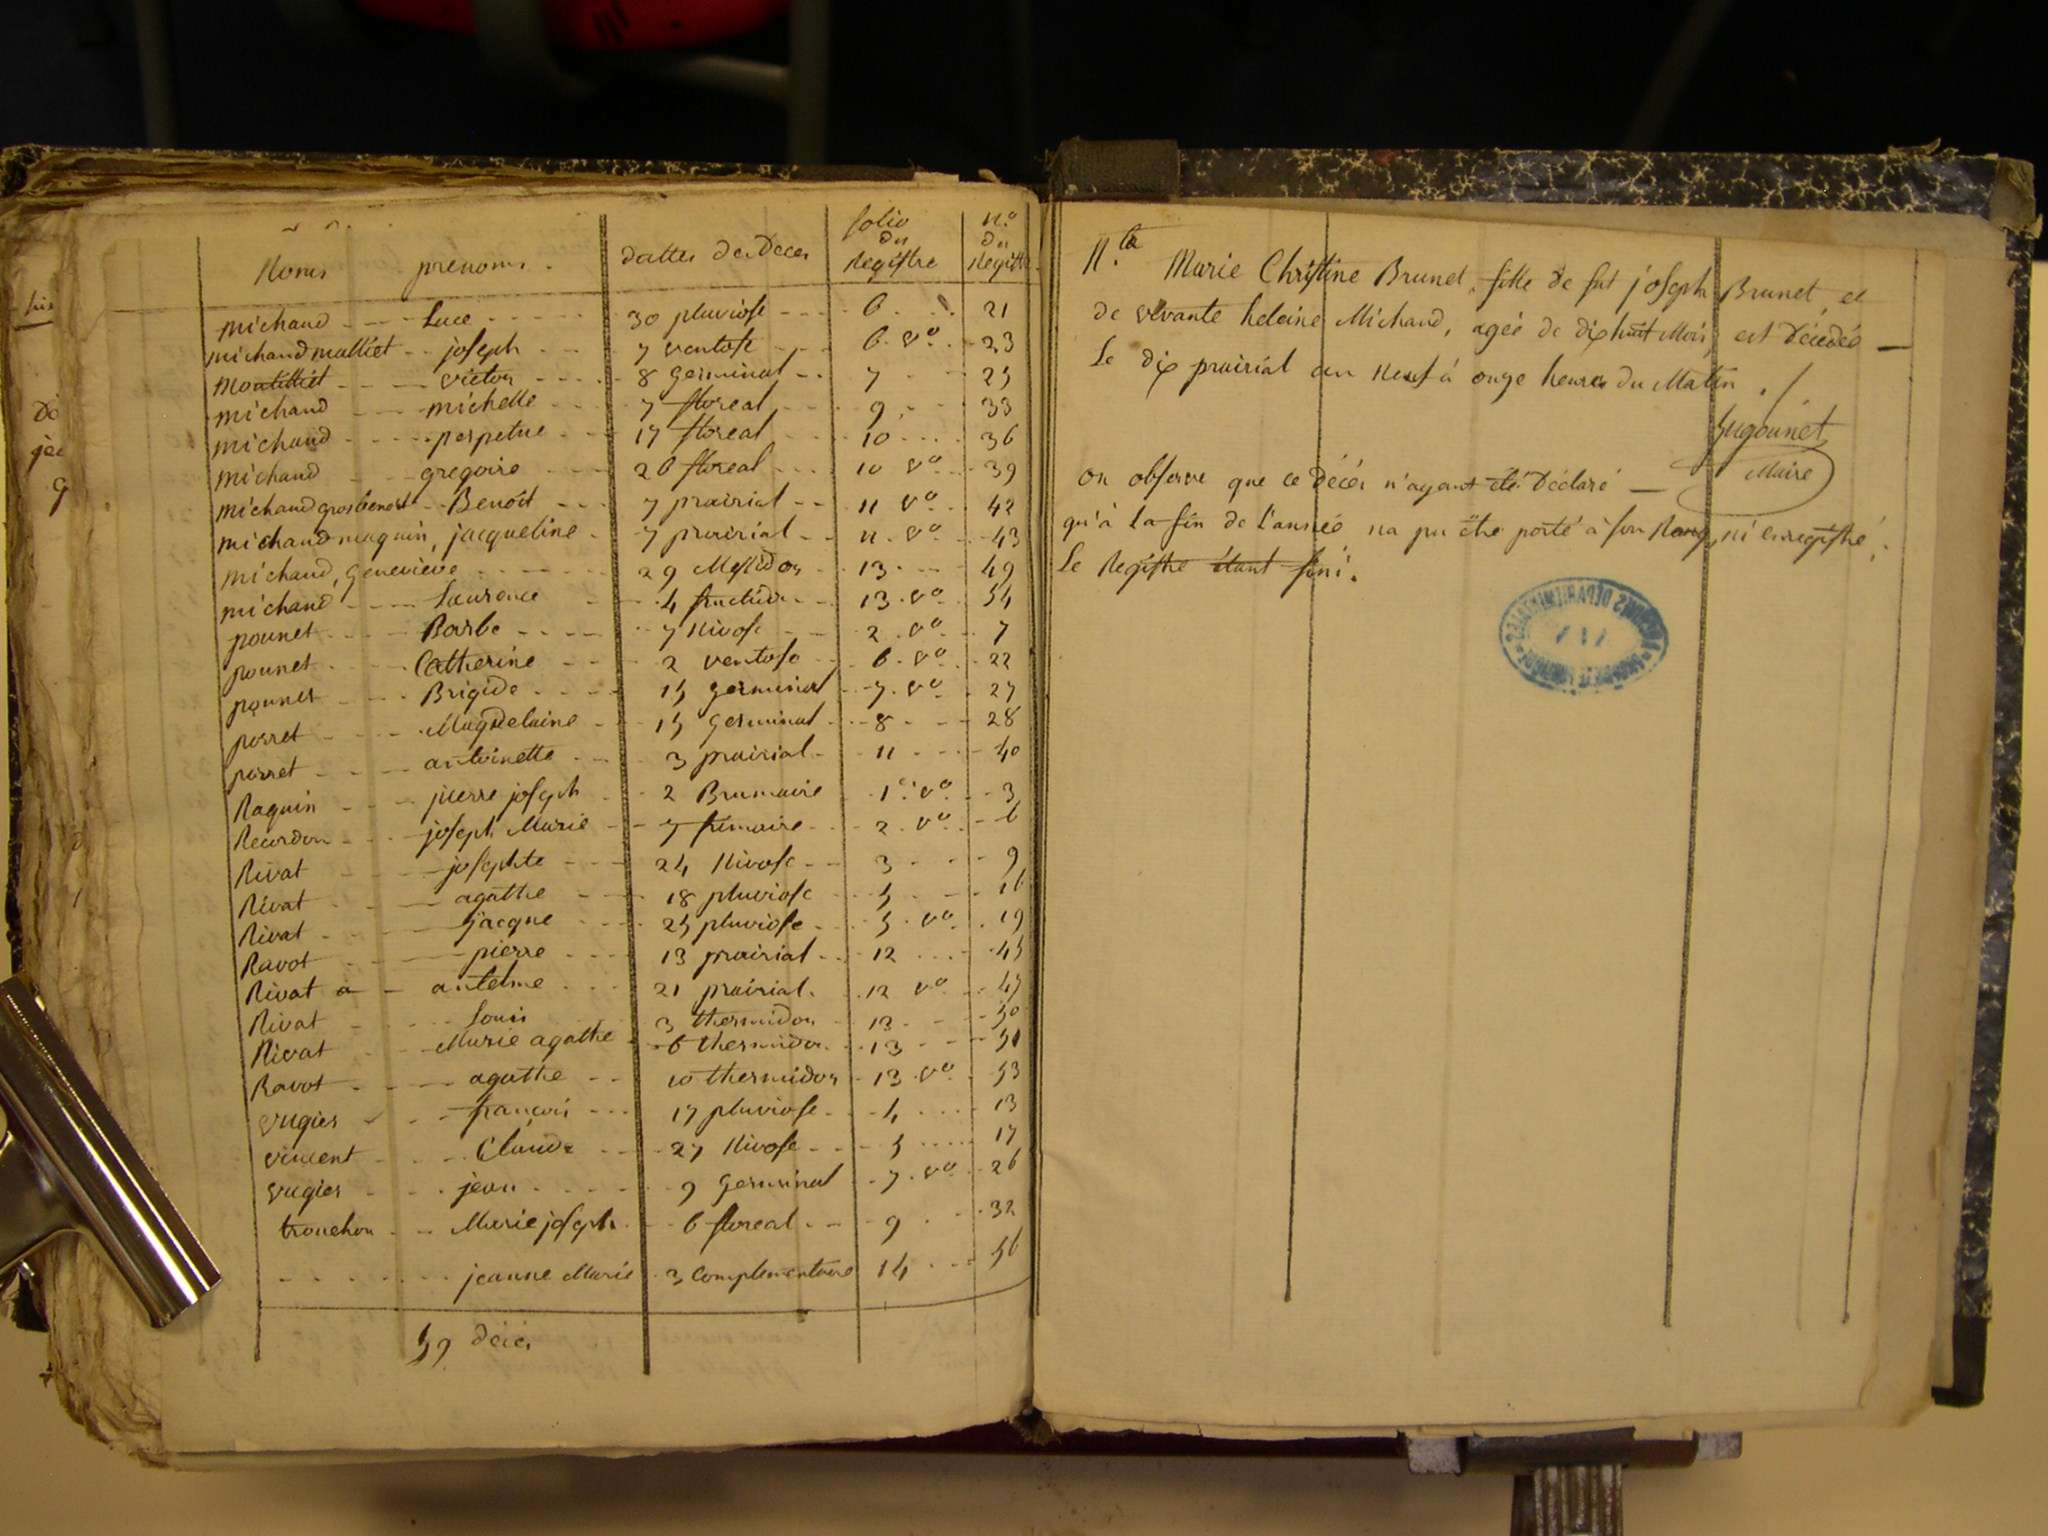 Noms prenoms. dattes des Deces folio du Registre N.o du Registre
michaud Luce 30 pluviose 6 21
michaud malliet joseph 7 ventose 6 vo 23
montilliet victor 8 Germinal 7 25
michaud michelle 7 floreal 9 33
michaud perpetue 17 floreal 10 36
michaud gregoire 26 floreal 10 vo 39
michaud gros benoit Benoit 7 prairial 11 vo 42
michaud maquin, jacqueline 7 prairial 11 vo 43
michaud, Geneviève 29 Messidor 13 49
michaud Laurence 4 fructidor 13 vo 54
pounet Barbe 7 Nivose 2 vo 7
pounet Catherine 2 ventose 6 vo 22
pounet Brigide 15 Germinal 7 vo 27
perret Magdelaine 15 Germinal 8 28
perret antoinette 3 prairial 11 40
Raquin pierre joseph 2 Brumaire 1er vo 3
Recordon joseph Marie 7 frimaire 2 vo 6
Rivat josephte 24 Nivose 3 9
Rivat agathe 18 pluviose 5 16
Rivat jacque 25 pluviose 5 vo 19
Ravot pierre 13 prairial 12 45
Rivat a antelme 21 prairial 12 vo 47
Rivat Louis 3 thermidor 13 50
Rivat Marie agathe 6 thermidor 13 51
Ravot agathe 10 thermidor 13 vo 53
vugier françois 17 pluviose 4 13
vincent Claude 27 Nivose 5 17
vugier jean 9 Germinal 7 vo 26
trouchon Marie joseph 6 floreal 9 32
jeanne Marie 3 Complementaire 14 56
59 décès
N.ta Marie Christine Brunet, fille de fut joseph Brunet, et
de vivante heleine Michaud, agée de dix huit Mois, est décédée
Le dix prairial an neuf à onze heures du Matin ./.
Sugounet
Maire
on observe que ce décés n'ayant été Déclaré
qu'à la fin de l'année na pu être porté à son Rang, ni enregistré,
Le Registre étant fini.